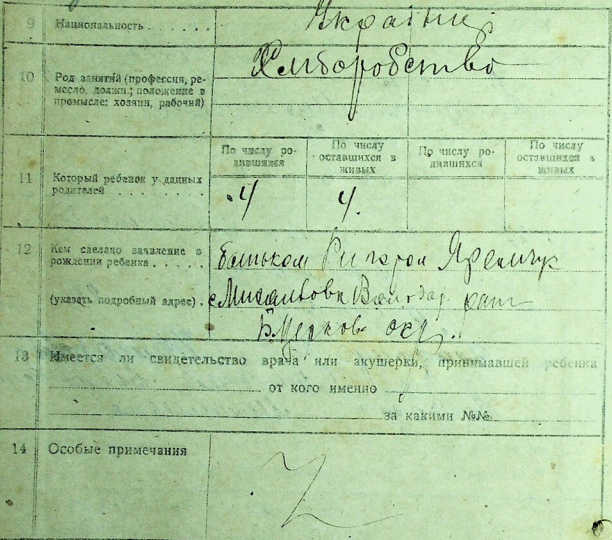 9 Национальность . . . . . Українці
10 Род занятий (профессия, ре-
месло, должн.; положение в
промысле: хозяин, рабочий)
Хліборобство
11 Который ребенок у данных
родителей . . . . . . . .
По числу ро-
дившихся
По числу
оставшихся в
живых
По числу ро-
дившихся
По числу
оставшихся в
живых
4 4.
12 Кем сделано заявление о
рождении ребенка . . . . .
(указать подробный адрес) .
батьком Григором Яремчук
с. Володар. рай
Б. Церков. окр.
13 Имеется ли свидетельство врача или акушерки, принимавшей ребенка
от кого именно
за какими №№
14 Особые примечания